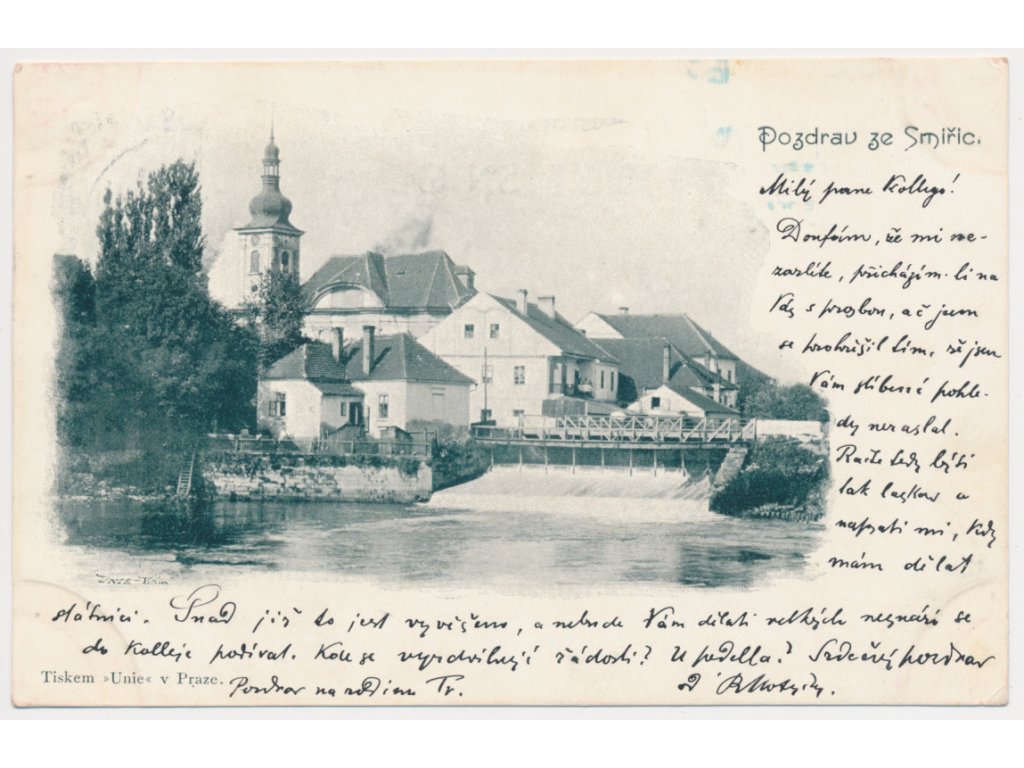 Pozdrav ze Smiřic.
Milý pane Kollego!
Doufám, že mi ne-
zazlíte, přicházím-li na
Vás s prosbou, ač jsem
se prohřešil tím, že jsem
Vám slíbené pohle-
dy nezaslal.
Račte tedy býti
tak laskav a
napsati mi, kdy
mám dělat
státnici. Snad již to jest vyvěšeno, a nebude Vám dělati velkých nesnází se
do Kolleje podívat. Kde se vyzdvihují žádosti? U pedella? Srdečný pozdrav
Tiskem »Unie« v Praze.
Pozdrav na rodinu Tv.